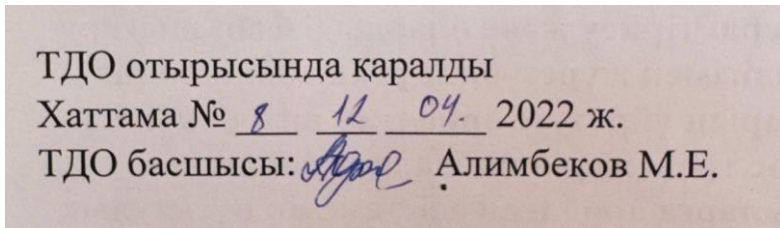 ТДО отырысында қаралды
Хаттама № 8 12 04. 2022 ж.
ТДО басшысы: Алимбеков М.Е.